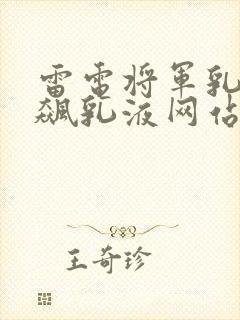 雷电将军乳
飙乳液网站
王奇珍